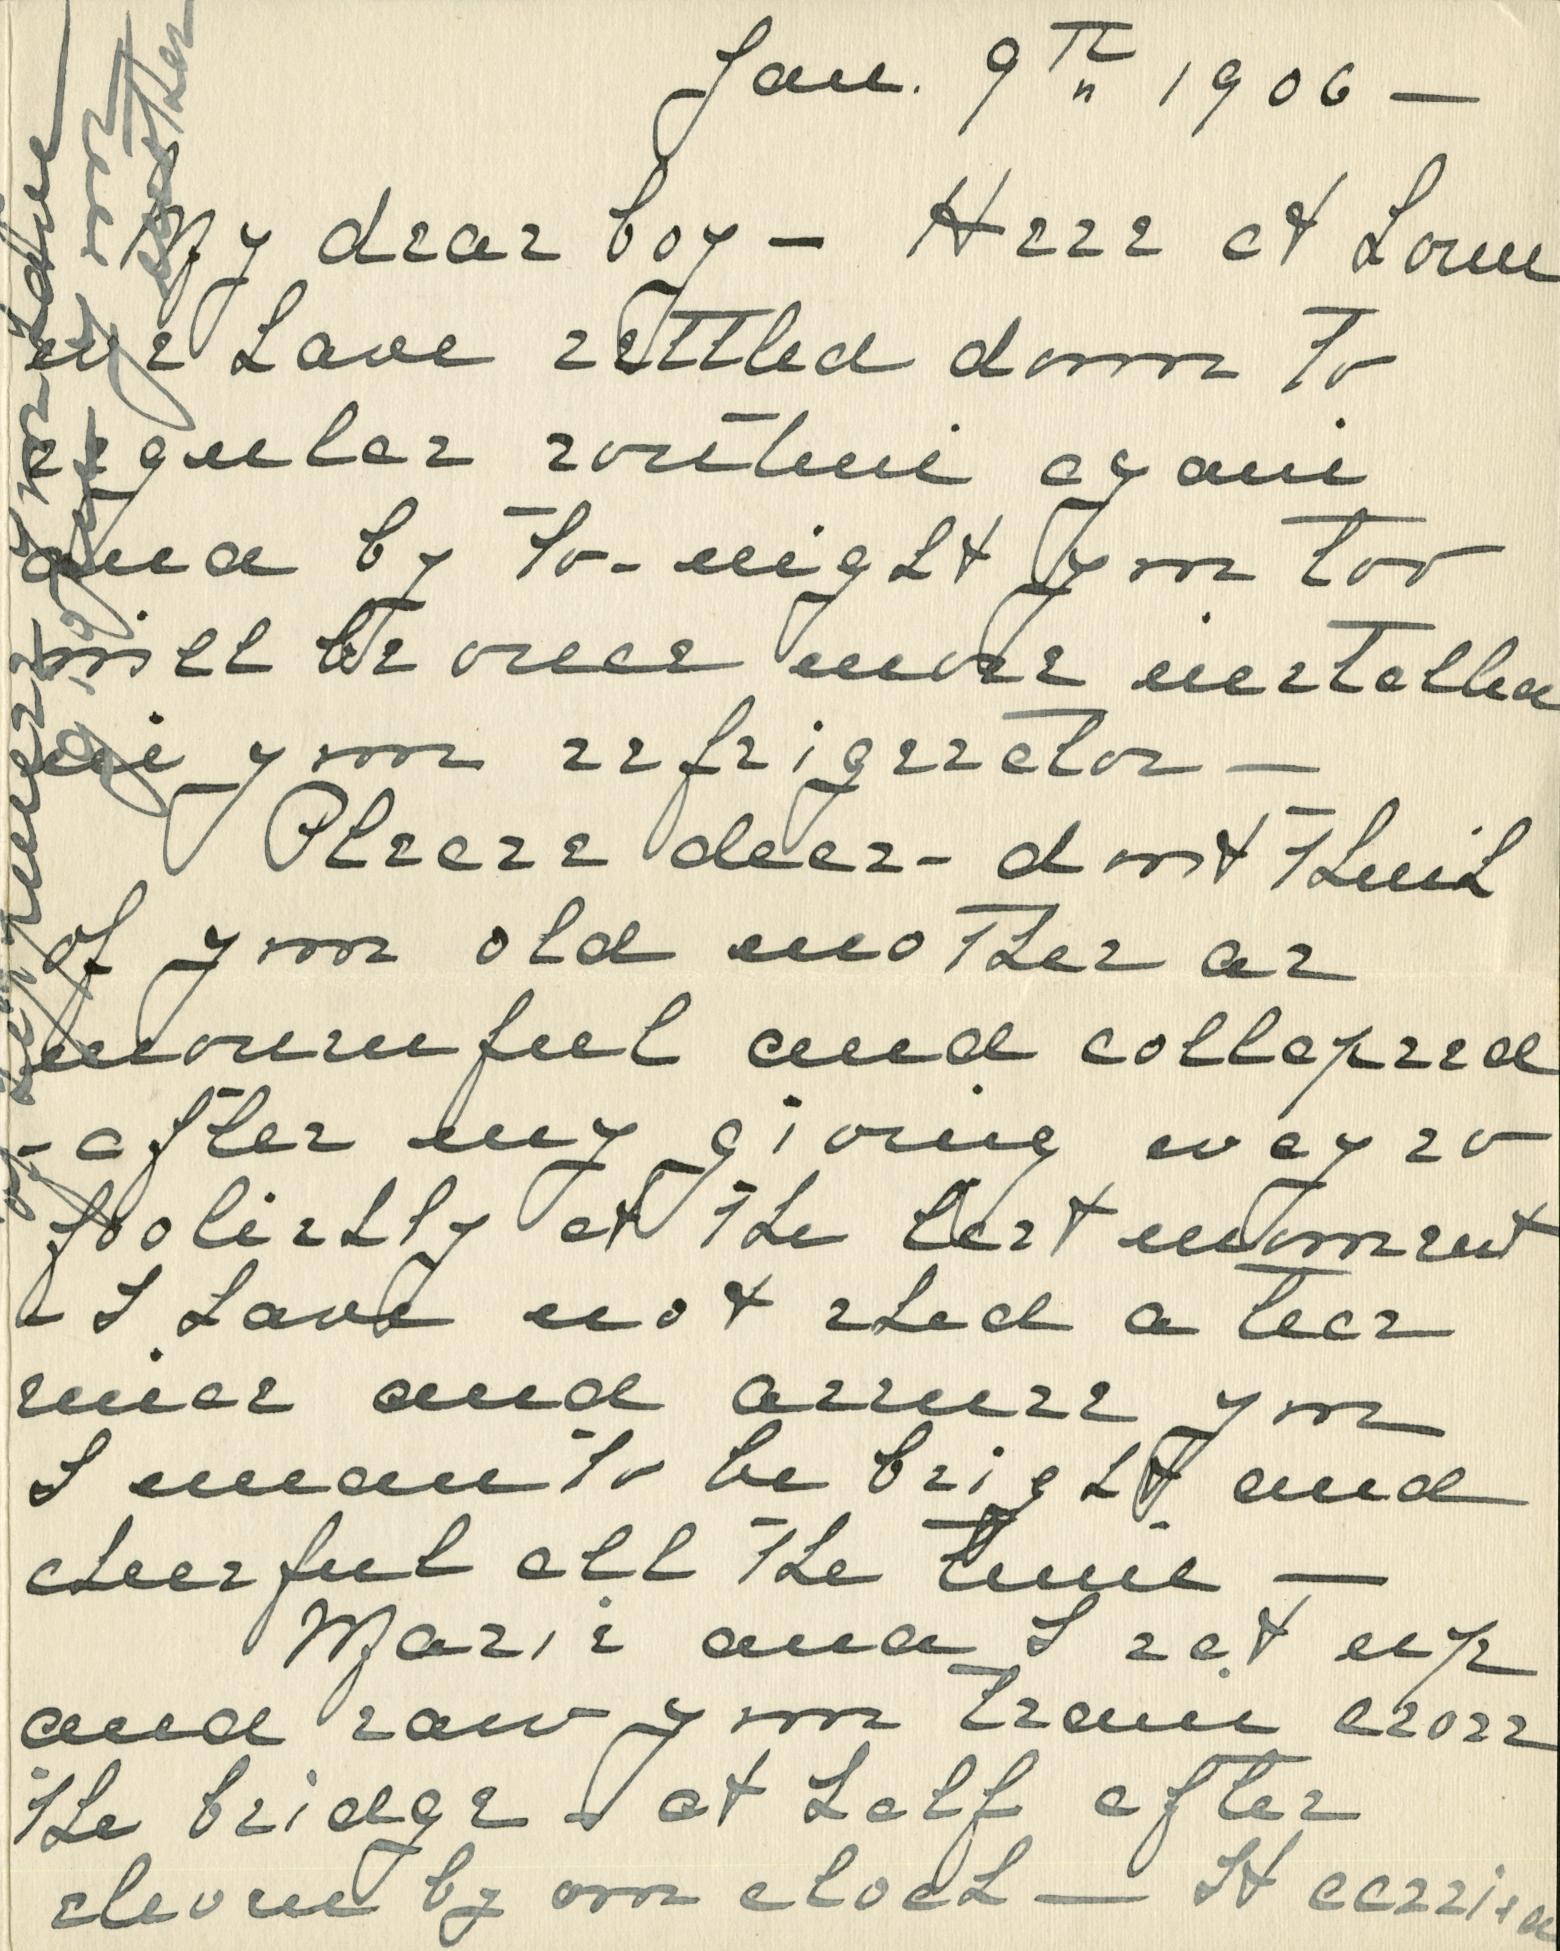 Jan. 9th 1906 —
My dear boy — Here at home
we have settled down to
regular routine again
and by to-night you too
will be once more installed
in your refrigerator —
Please dear - don't think
of your old mother as
mournful and collapsed
- after my giving way so
foolishly at the last moment
- I have not shed a tear
since and assure you
I mean to be bright and
cheerful all the time —
Marie and I sat up
and saw your train cross
the bridge - at half after
eleven by our clock — It carried
mother